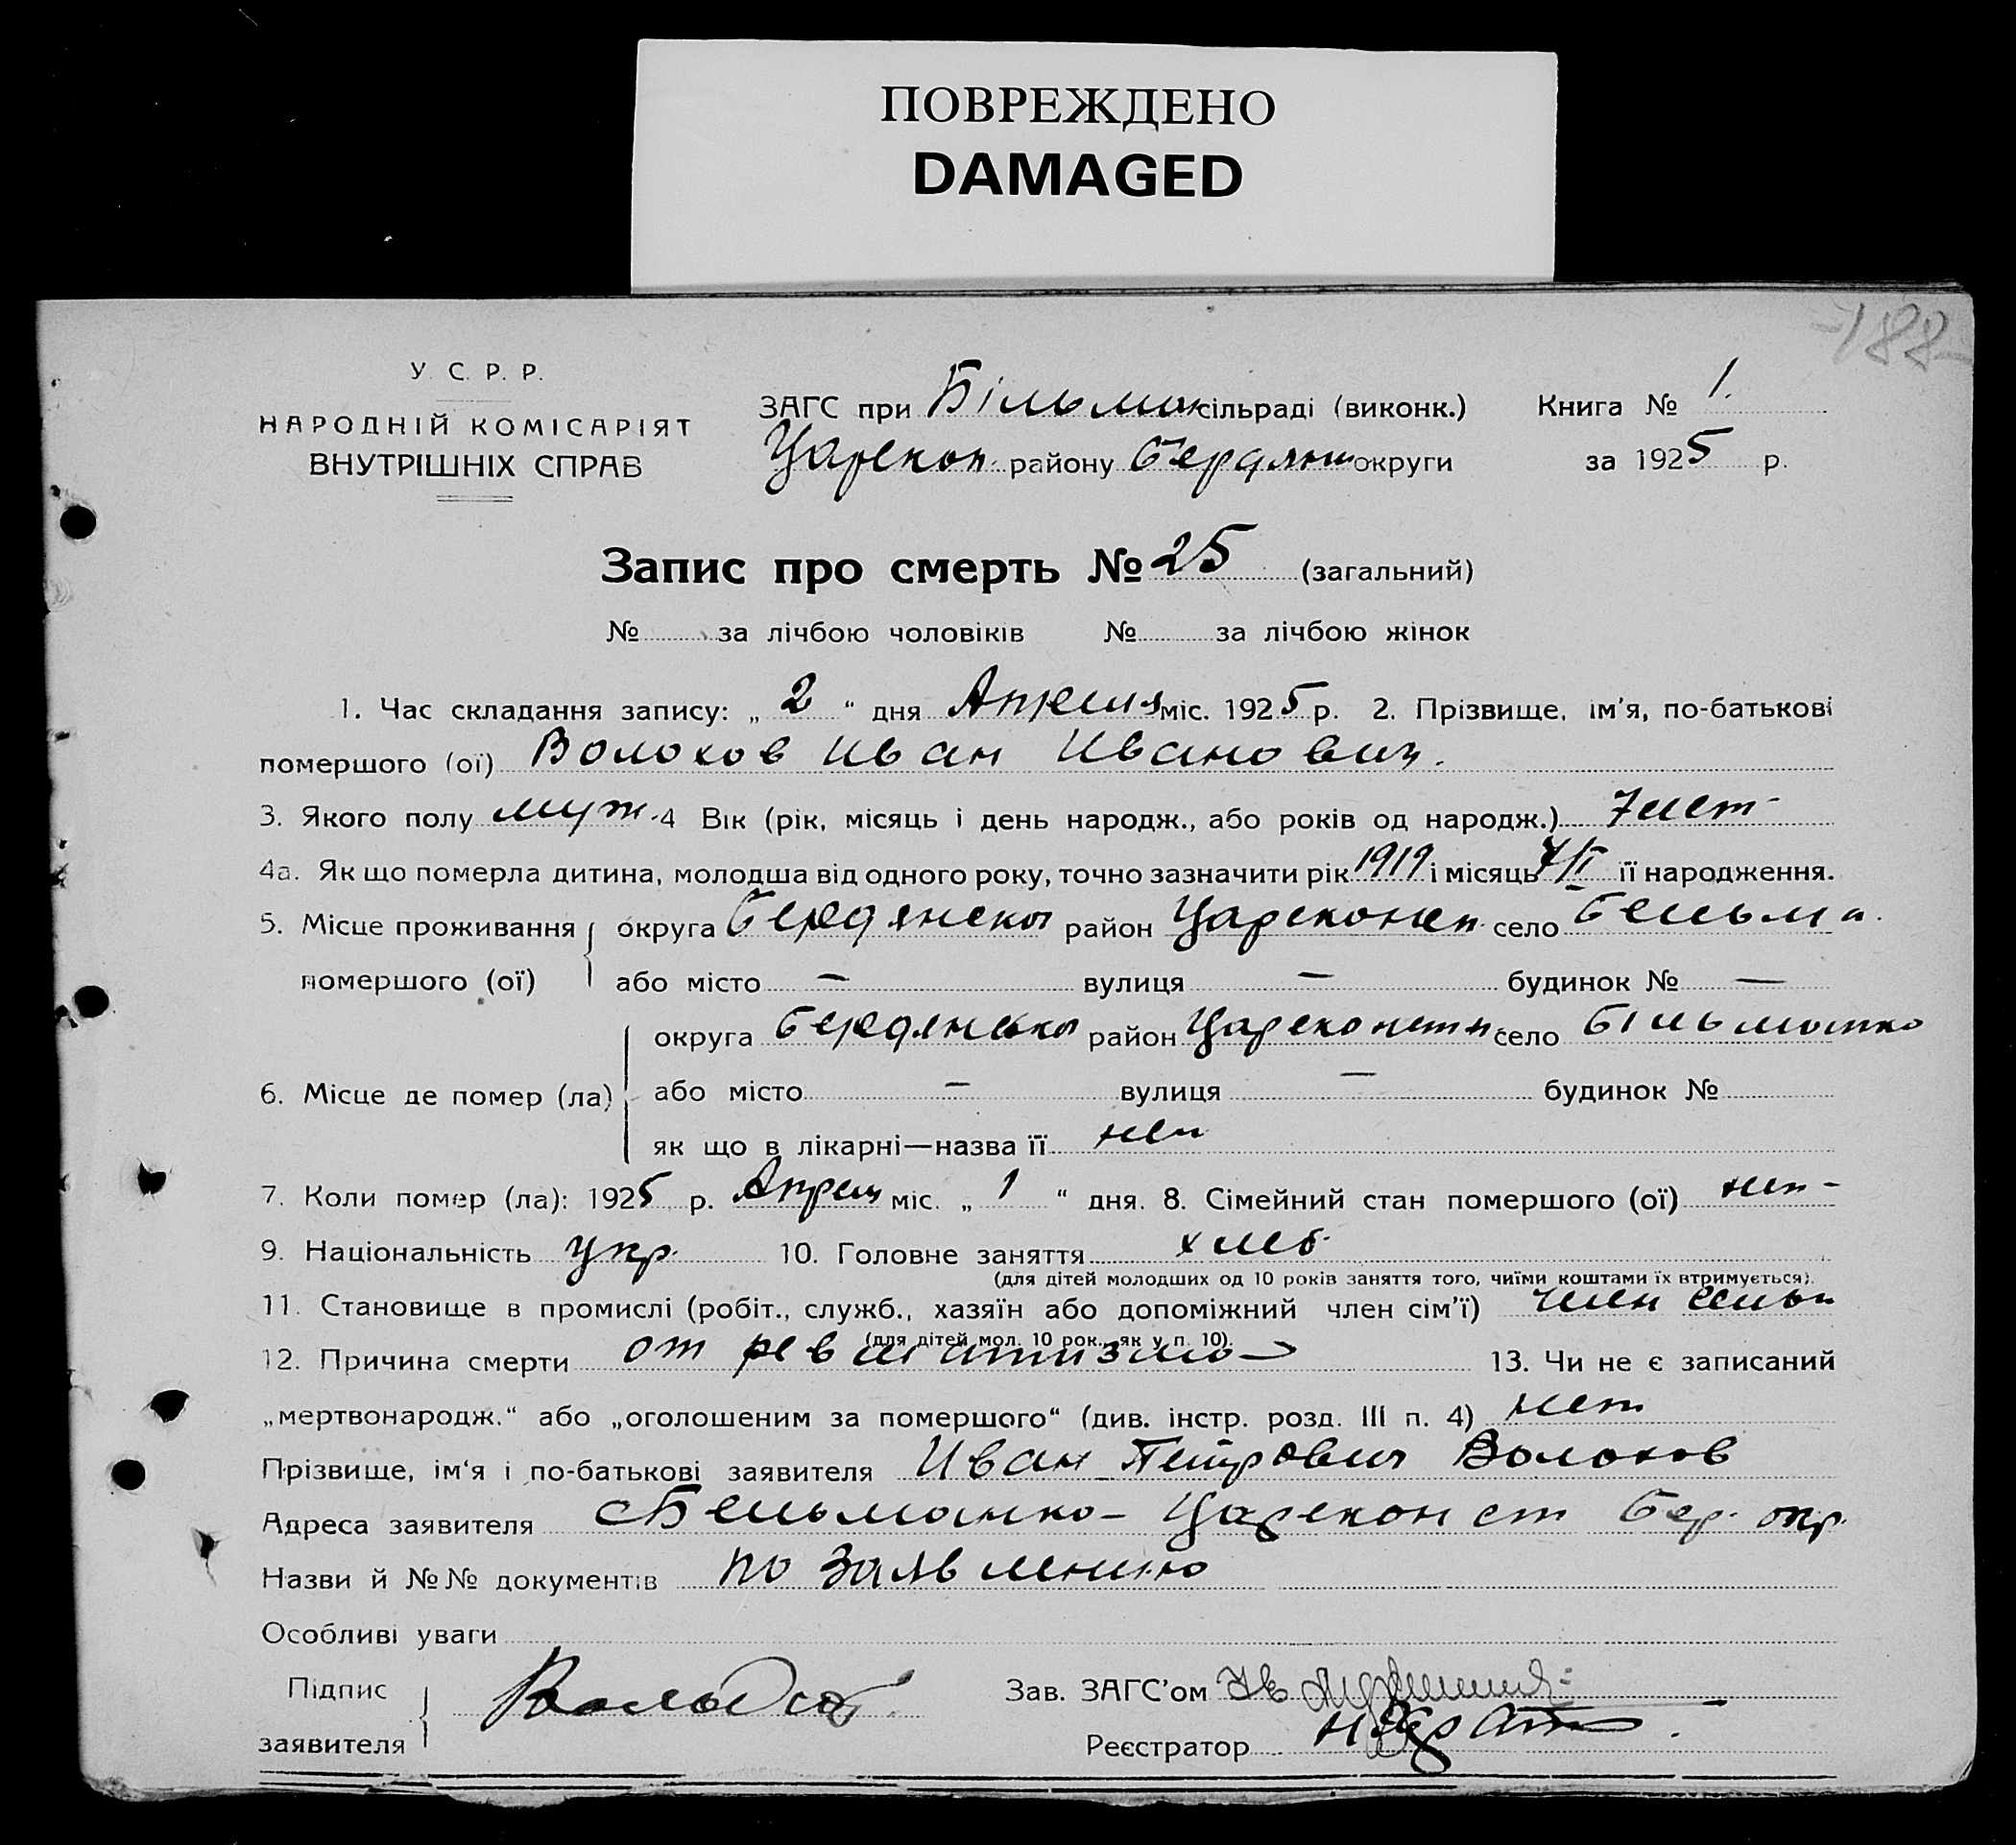 ПОВРЕЖДЕНО
DAMAGED
188
У. С. Р. Р.
НАРОДНІЙ КОМІСАРІЯТ
ВНУТРІШНІХ СПРАВ
ЗАГС при Більман сільраді (виконк.) Книга № 1.
Царекон. району Бердянш округи за 1925 р.
Запис про смерть № 25 (загальний)
№ за лічбою чоловіків № за лічбою жінок
1. Час складання запису: „ 2 “ дня Апреля міс. 1925 р. 2. Прізвище, ім’я, по-батькові
помершого (ої) Волохов Иван Иванович.
3. Якого полу муж. 4 Вік (рік, місяць і день народж., або років од народж.) 7 лет
4а. Як що померла дитина, молодша від одного року, точно зазначити рік 1919 і місяць 7/I її народження.
5. Місце проживання помершого (ої) округа Бердянска район Цареконст. село Бельма.
або місто – вулиця – будинок № —
6. Місце де помер (ла) округа Бердянська район Цареконстн. село Більманка
або місто – вулиця — будинок №
як що в лікарні—назва її нет
7. Коли помер (ла): 1925 р. Апреля міс. „ 1 “ дня. 8. Сімейний стан помершого (ої) нет -
9. Національність Укр. 10. Головне заняття хлеб.
(для дітей молодших од 10 років заняття того, чиїми коштами їх втримується).
11. Становище в промислі (робіт., служб., хазяїн або допоміжний член сім’ї) член семьи
(для дітей мол. 10 рок., як у п. 10).
12. Причина смерти от ревматизма 13. Чи не є записаний
„мертвонародж.“ або „оголошеним за помершого“ (див. інстр. розд. III п. 4) нет
Прізвище, ім‘я і по-батькові заявителя Иван Петрович Волохов
Адреса заявителя с Бельманка - Цареконст Бер. окр.
Назви й №№ документів по заявлению
Особливі уваги
Підпис заявителя Зав. ЗАГС’ом
Реєстратор